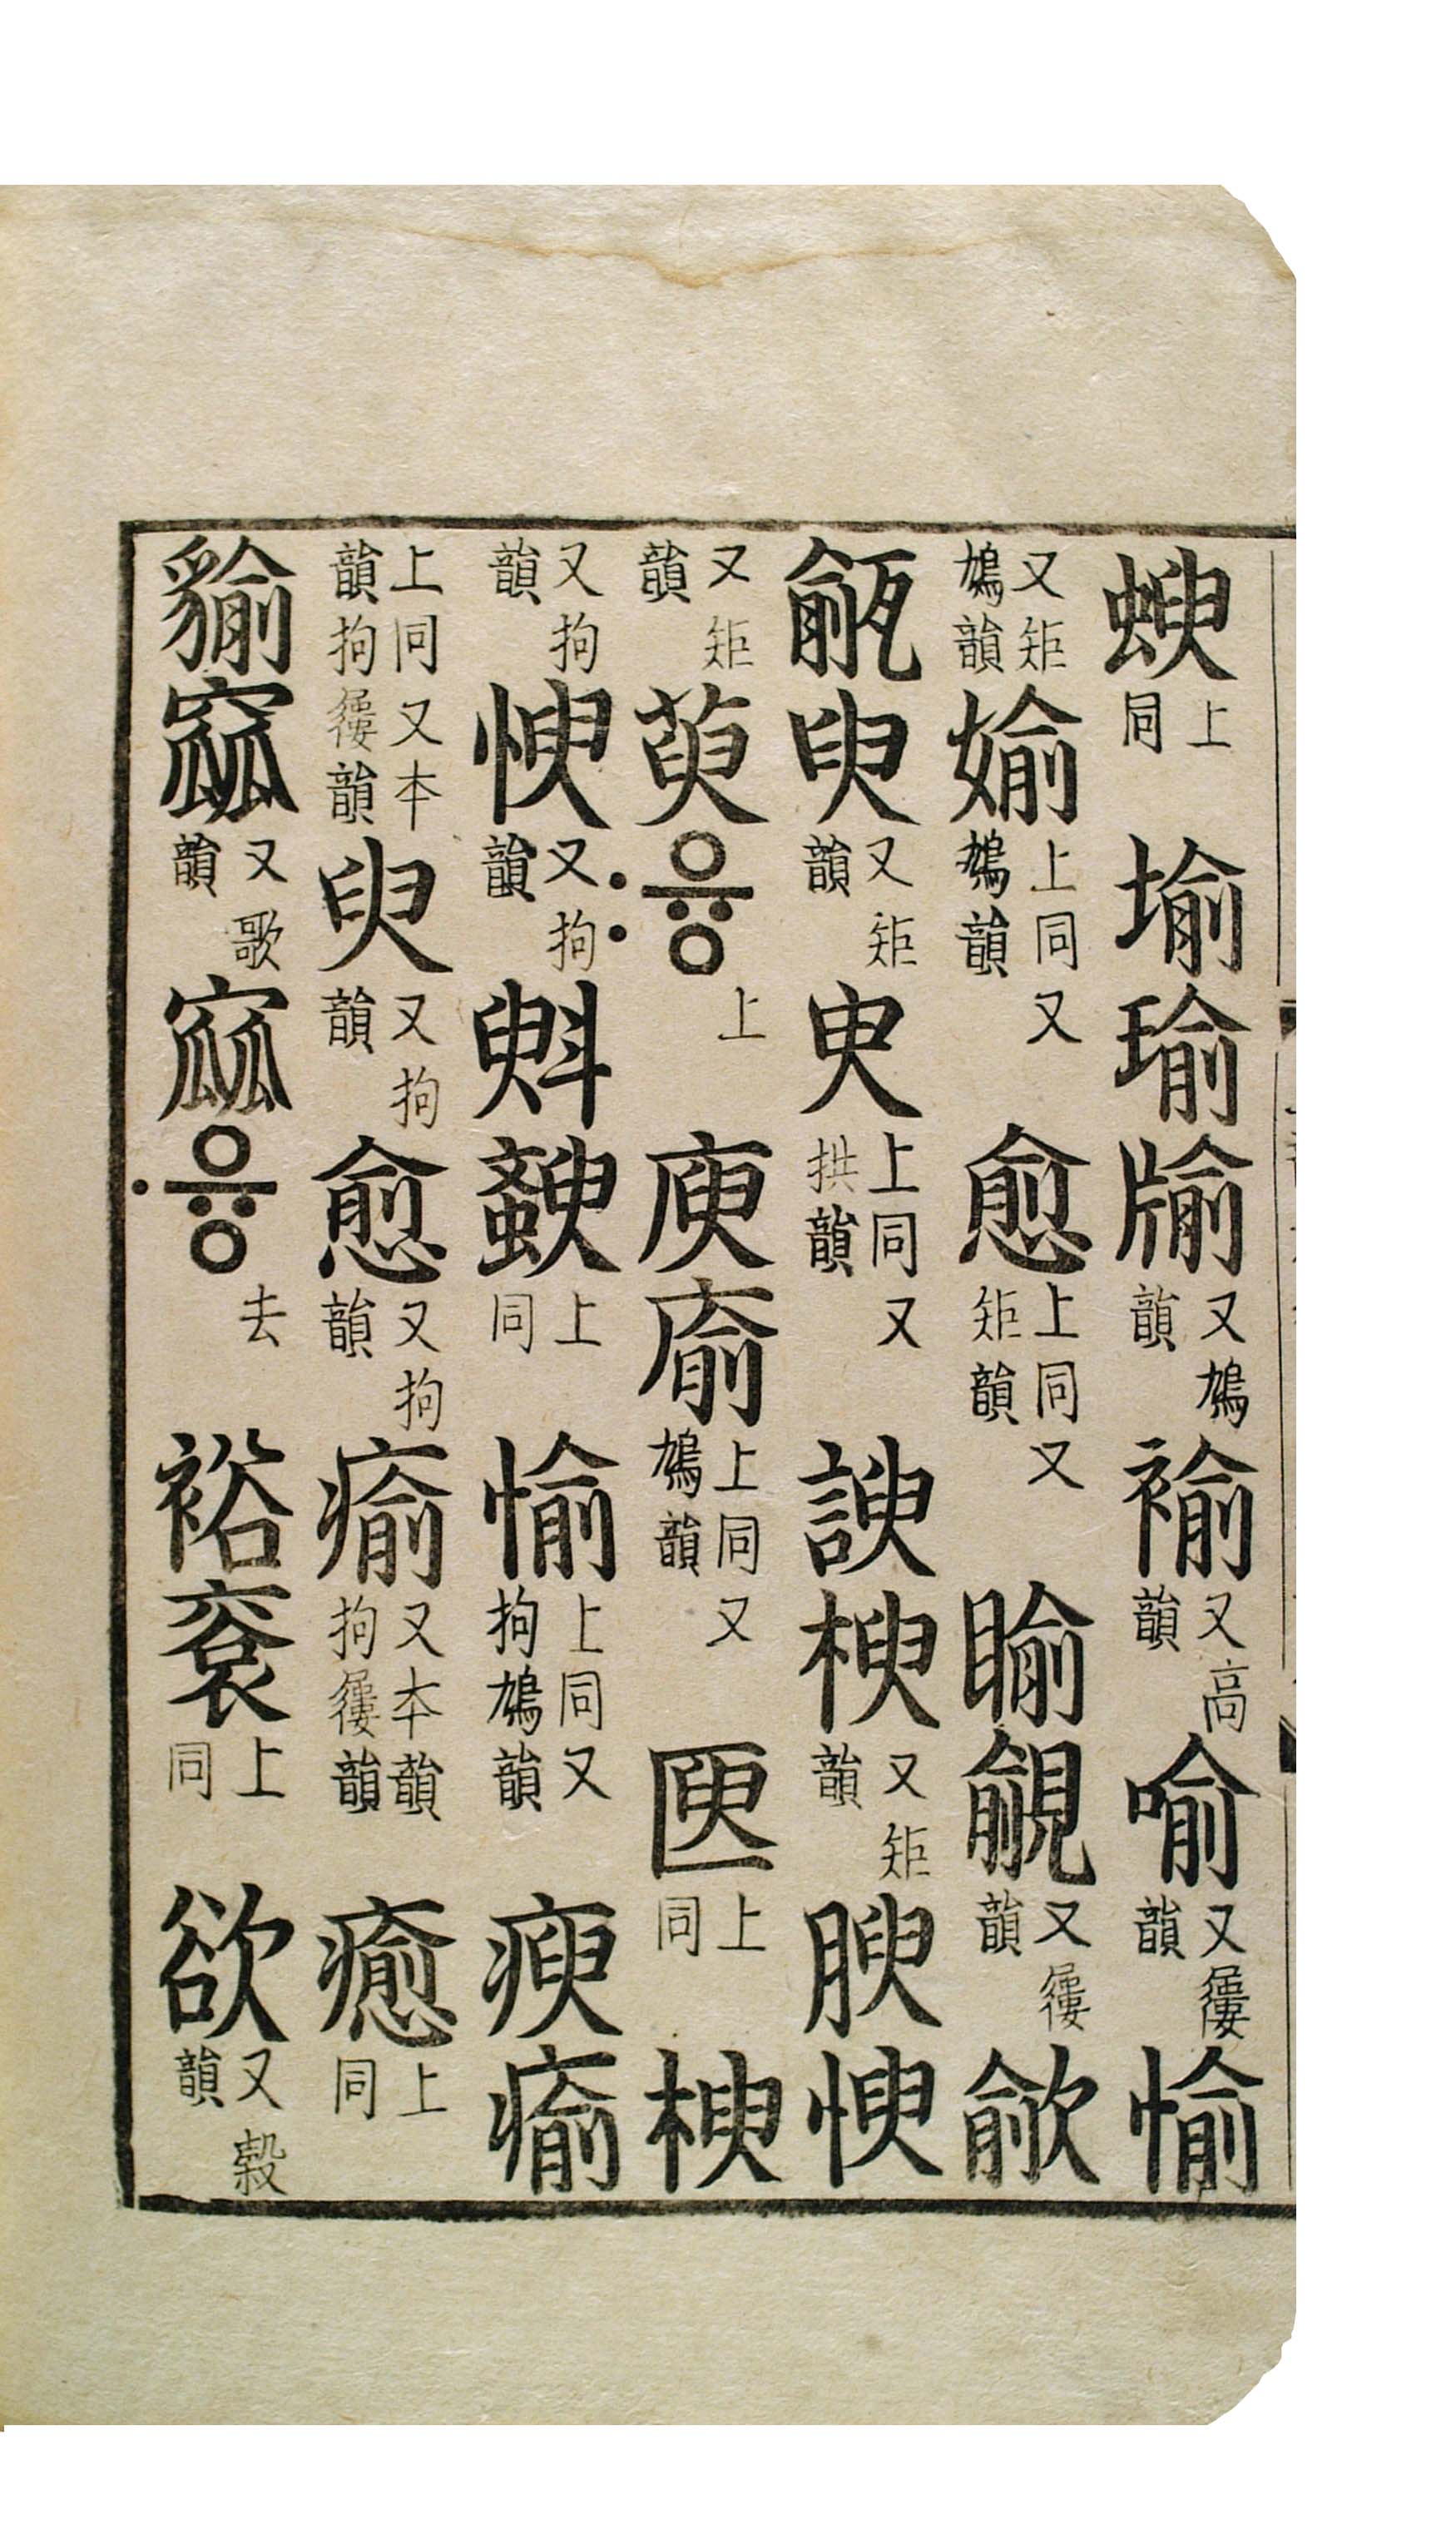 上同 堬 瑜 牏 又鳩韻 褕 又高韻 喻 又屨韻 愉
又矩鳩韻 媮 上同又鳩韻 愈 上同又矩韻 睮 覦 又屨韻 歈
臾 又矩韻 㬰 上同又拱韻 諛 楰 又矩韻 腴
又矩韻 萸 융〯 上 庾 㢏 上同又鳩韻 上同 楰
又拘韻 又拘韻 斞 上同 愉 上同又拘鳩韻 瘐 瘉
上同又本韻拘屨韻 臾 又拘韻 愈 又拘韻 瘉 又本韻拘屨韻 癒 上同
貐 窳 又歌韻 융〮 去 裕 上同 欲 又穀韻